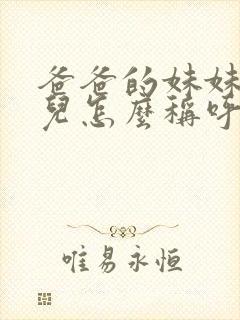 爸爸的妹妹
兒怎麼稱呼
唯易永恒